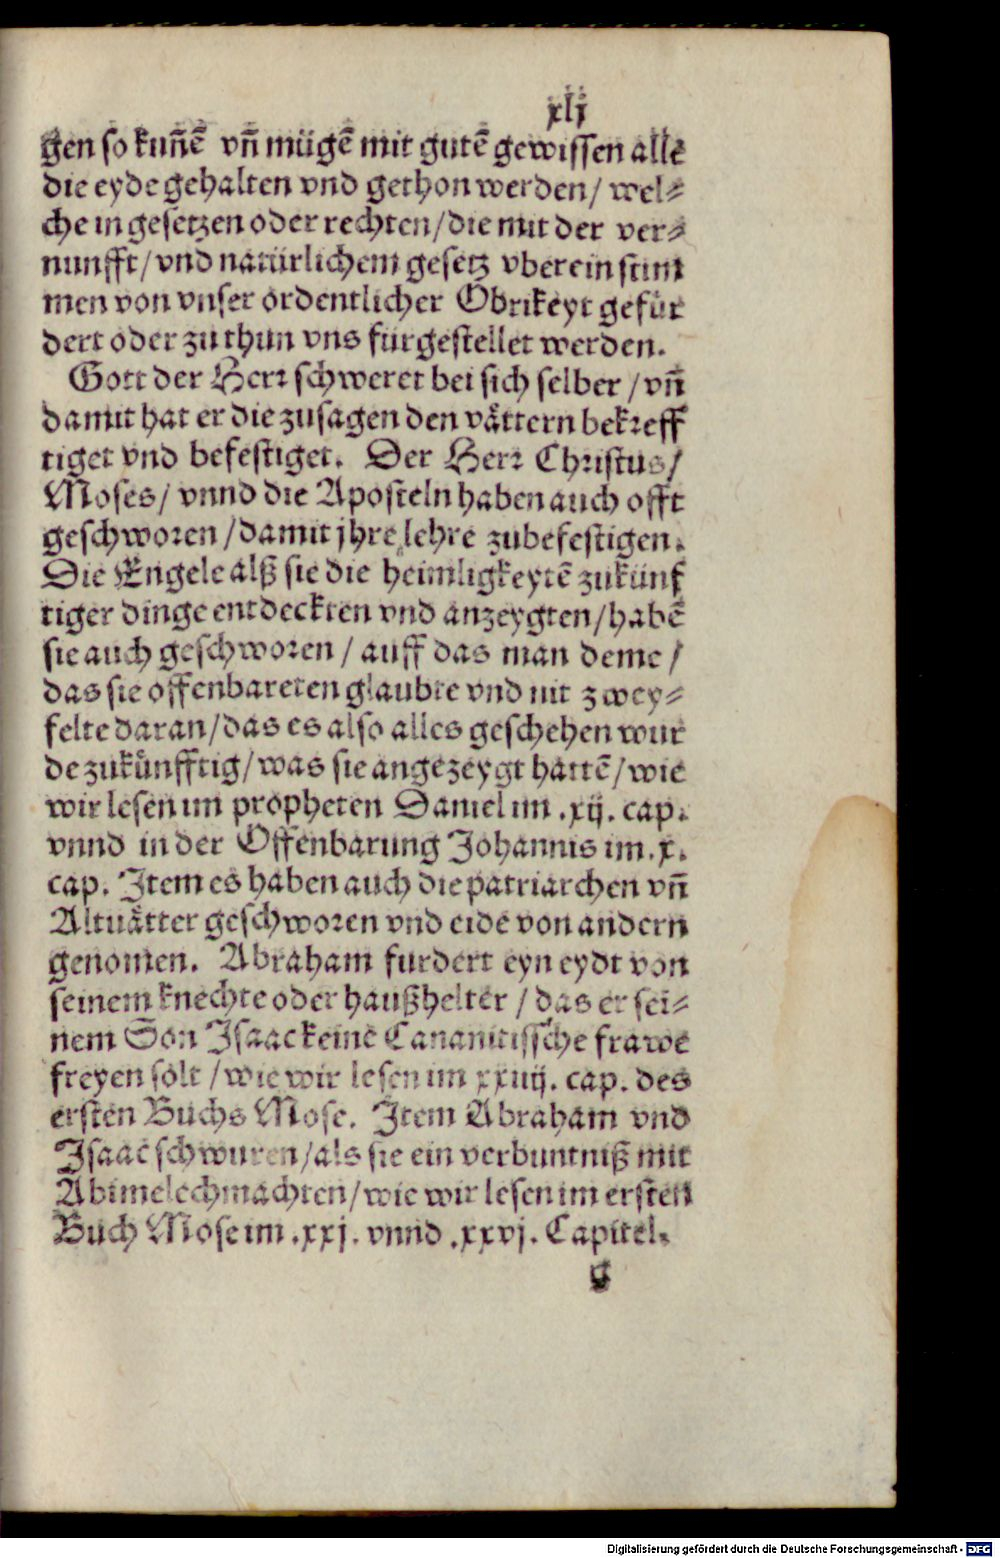 xlj
gen so kuñẽ vñ mügẽ mit gutẽ gewissen alle
die eyde gehalten vnd gethon werden/ wel⸗
che in gesetzen oder rechten/ die mit der ver⸗
nunfft/ vnd natürlichem gesetz vberein stim
men von vnser ordentlicher Obrikeyt gefür
dert oder zu thun vns furgestellet werden.
Gott der Herr schweret bei sich selber / vñ
damit hat er die zusagen den vättern bekreff
tiget vnd befestiget. Der Herr Christus/
Moses/ vnnd die Aposteln haben auch offt
geschworen / damit jhre lehre zubefestigen.
Die Engele alß sie die heimligkeytẽ zukünf
tiger dinge entdeckten vnd anzeygten/ habẽ
sie auch geschworen / auff das man deme /
das sie offenbareten glaubte vnd nit zwey⸗
felte daran/ das es also alles geschehen wur
de zukünfftig/ was sie angezeygt hattẽ/ wie
wir lesen im propheten Daniel im .xij. cap.
vnnd in der Offenbarung Johannis im .x.
cap. Item es haben auch die patriarchen vñ
Altuätter geschworen vnd eide von andern
genomen. Abraham furdert eyn eydt von
seinem knechte oder haußhelter / das er sei⸗
nem Son Isaac keine Cananitissche frawe
freyen solt / wie wir lesen im xxiiij. cap. des
ersten Buchs Mose. Item Abraham vnd
Isaac schwuren/ als sie ein verbuntniß mit
Abimelech machten/ wie wir lesen im ersten
Buch Mose im .xxj. vnnd .xxvj. Capitel.
g
Digitalisierung gefördert durch die Deutsche Forschungsgemeinschaft - DFG